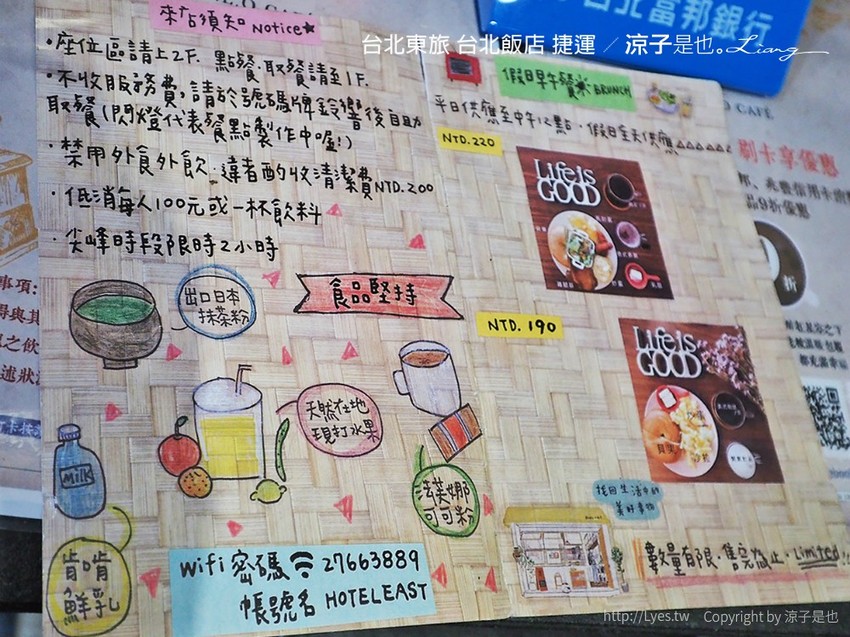 台北富邦銀行
台北東旅 台北飯店 捷運 ／ 涼子是也。Liang
來店須知 Notice★
・座位區請上2F. 點餐、取餐請至1F.
・不收服務費,請於號碼牌鈴響後自助
取餐(閃燈代表餐點製作中喔!)
・禁用外食外飲,違者酌收清潔費NTD.200
・低消每人100元或一杯飲料
・尖峰時段限時2小時
出口日本
抹茶粉
食品堅持
天然在地
現打水果
MILK
法芙娜
可可粉
肯啃
鮮乳
wifi 密碼 27663889
帳號名 HOTELEAST
假日早午餐 BRUNCH
平日供應至中午12點、假日全天供應
NTD.220
Life IS
GOOD
NTD. 190
Life IS
GOOD
找回生活中的
美好事物
數量有限、售完為止、Limited!!
CAFÉ
刷卡享優惠
http://Lyes.tw Copyright by 涼子是也